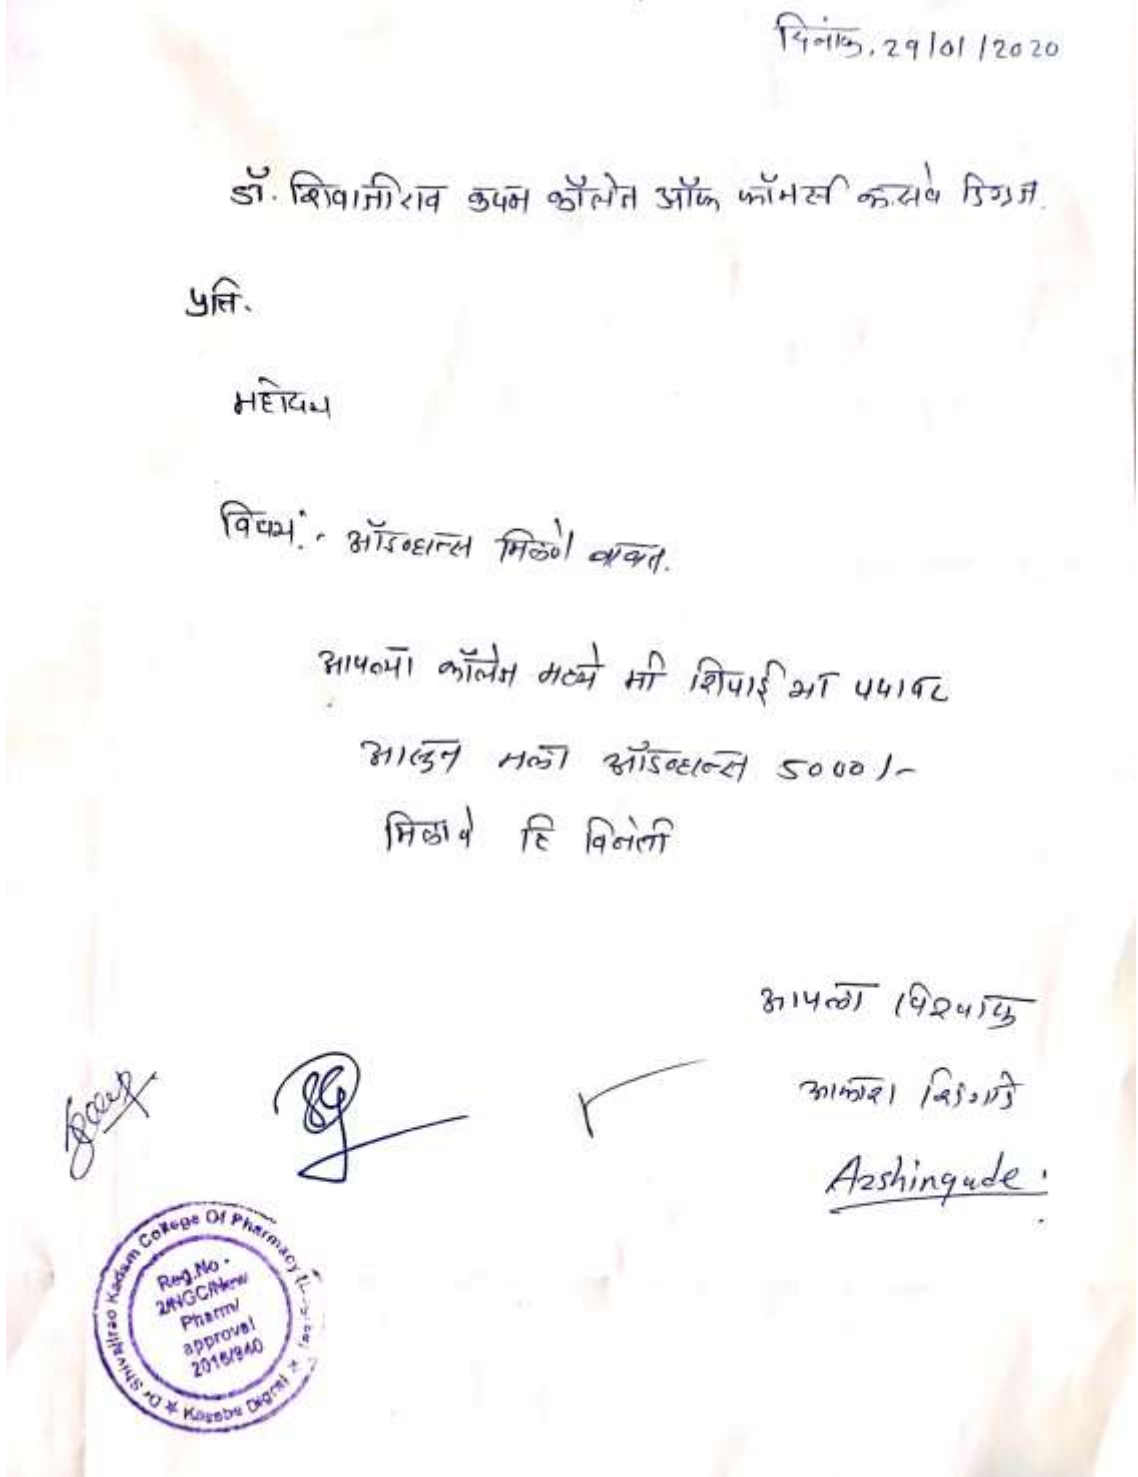 दिनांक. 29/01/2020
डॉ. शिवाजीराव कदम कॉलेज ऑफ फॉमर्सी कसबे डिग्रज.
प्रति.
महोदय
विषय:- ॲडव्हान्स मिळणे बाबत.
आपल्या कॉलेज मध्ये मी शिपाई या पदावर
असुन मला ॲडव्हान्स 5000/-
मिळावे हि विनंती
आपला विश्वासु
आकाश शिंगाडे
Azshingade.
Dr Shivajirao Kadam College Of Pharmacy
Kasabe Digraj
Reg.No -
2/NGC/New
Pharm/
approval
2016/940